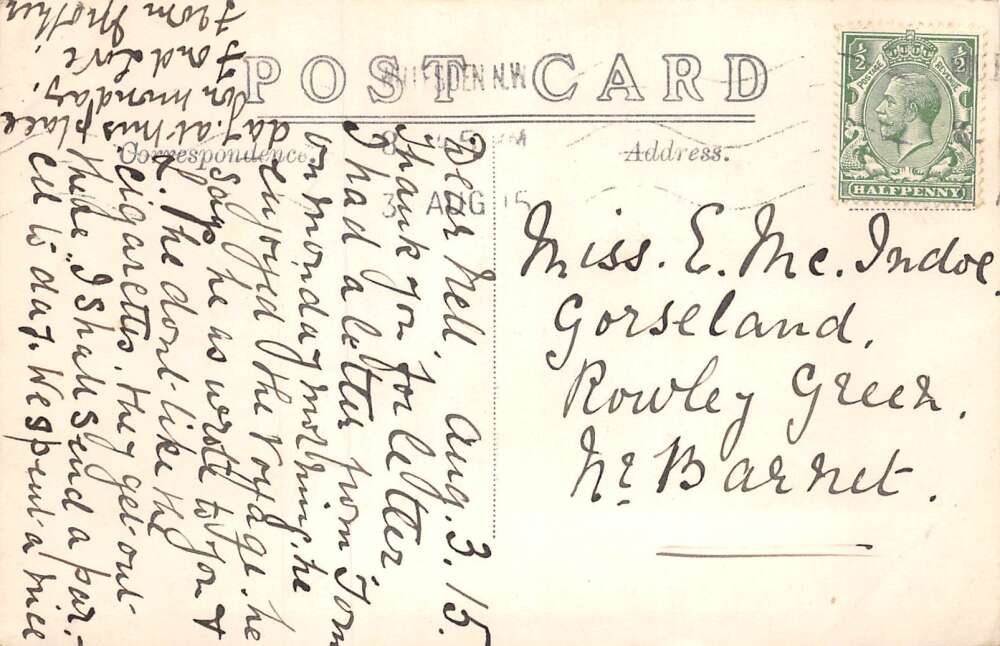 POST CARD
Correspondence.
Address.
WILLESDEN N.W.
3 AUG 15
½ ½
POSTAGE REVENUE
HALFPENNY
Miss. E. Mc. Indoe
Gorseland,
Rowley Green,
Nr Barnet.
Dear Nell, Aug. 3. 15.
Thank you for letter,
I had a letter from Tom
on monday morning, he
enjoyed the voyage. he
says he as wrote to you &
L. he dont like the
cigarettes, they get out
there, I shall send a par-
cel to day. We spent a nice
day at this place
on monday,
Fond Love
from Mother